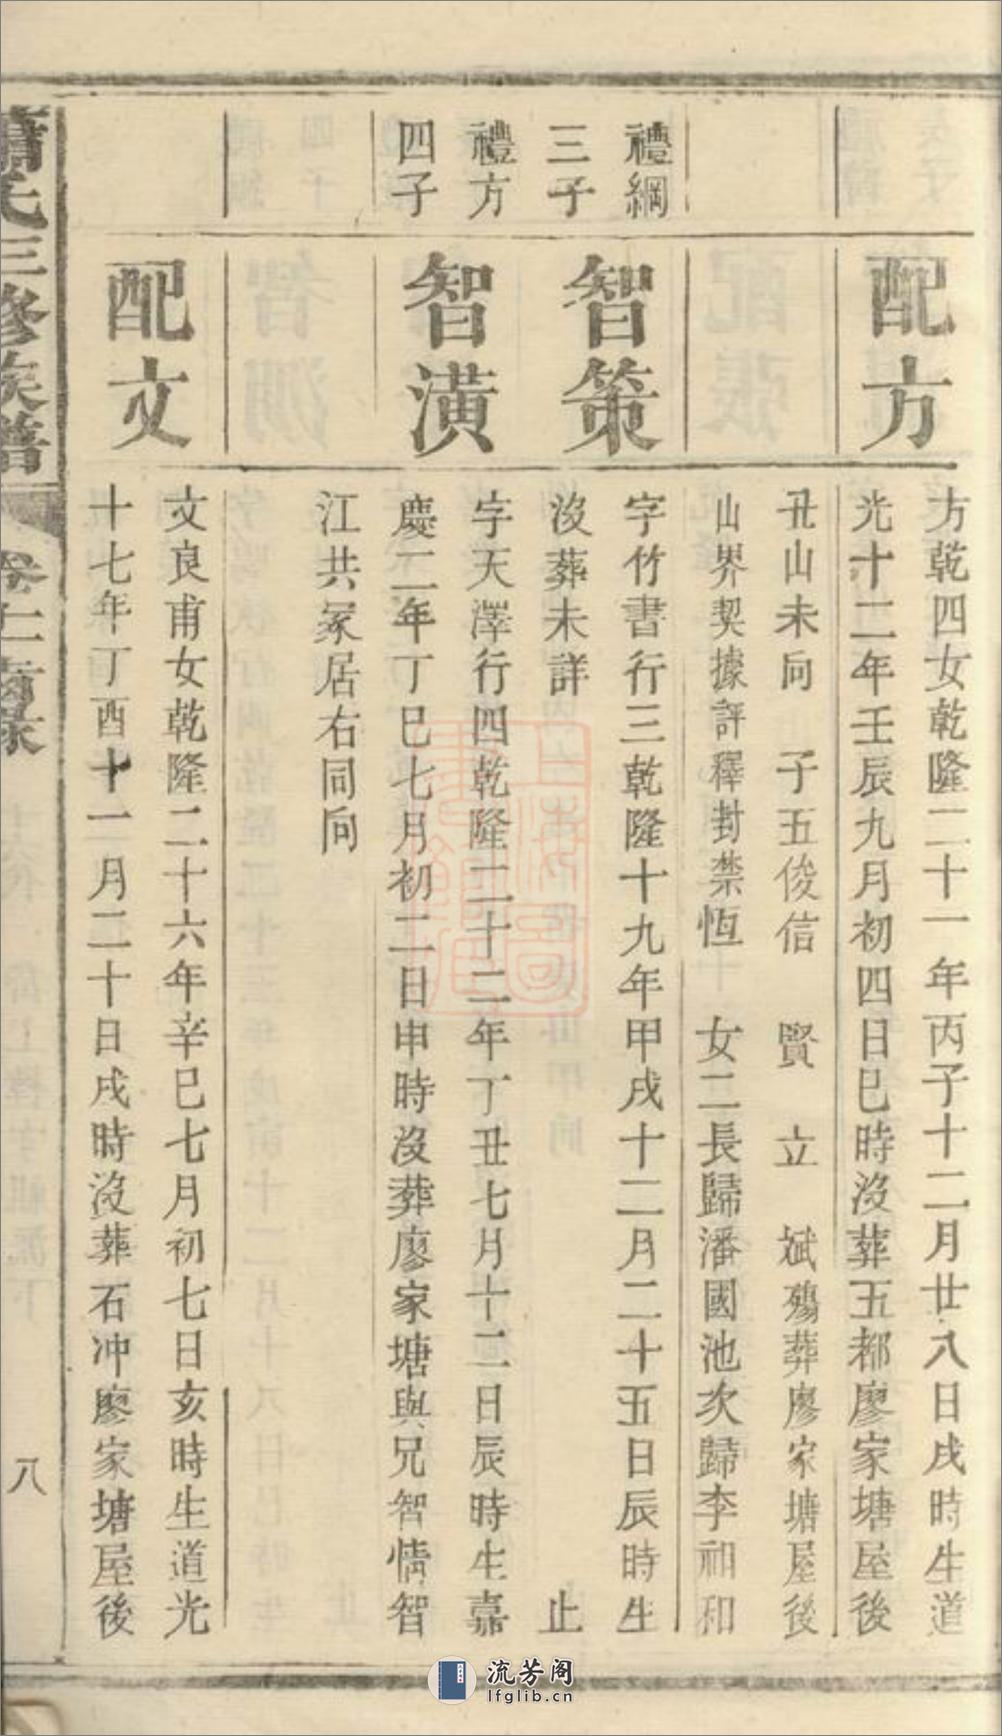 配方
方乾四女乾隆二十一年丙子十二月廿八日戌時生道
光十二年壬辰九月初四日巳時沒葬五都廖家塘屋後
丑山未向 子五俊信 賢 立 斌殤葬廖家塘屋後
山界契據評釋封禁恆 女二長歸潘國池次歸李祖和
禮綱
三子
智策
字竹書行三乾隆十九年甲戌十二月二十五日辰時生
沒葬未詳 止
禮方
四子
智潢
字天澤行四乾隆二十二年丁丑七月十二日辰時生嘉
慶二年丁巳七月初二日申時沒葬廖家塘與兄智情智
江共冢居右同向
配文
文良甫女乾隆二十六年辛巳七月初七日亥時生道光
十七年丁酉十一月二十日戌時沒葬石冲廖家塘屋後
蕭氏三修族譜
八
流芳阁
lfglib.cn